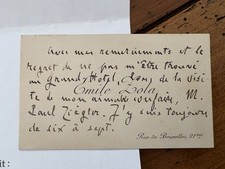 Avec mes remerciements et le
regret de ne pas m'être trouvé
au Grand Hôtel, lors de la visi
te de mon aimable confrère, M.
Emile Zola
Paul Ziégler. J'y suis toujours
de six à sept.
Rue de Bruxelles, 21 bis
it: